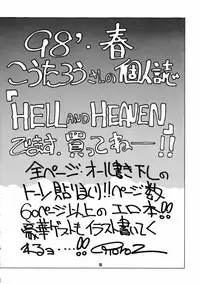 98'・春
こうたろうさんの個人読
『HELL AND HEAVEN』
でます。買ってねー!!
全ページオール書き下しの
トーン貼りまくり!!ページ数
60ページ以上のエロ本!!
豪華ゲストもイラスト書いてく
れるョ…!!